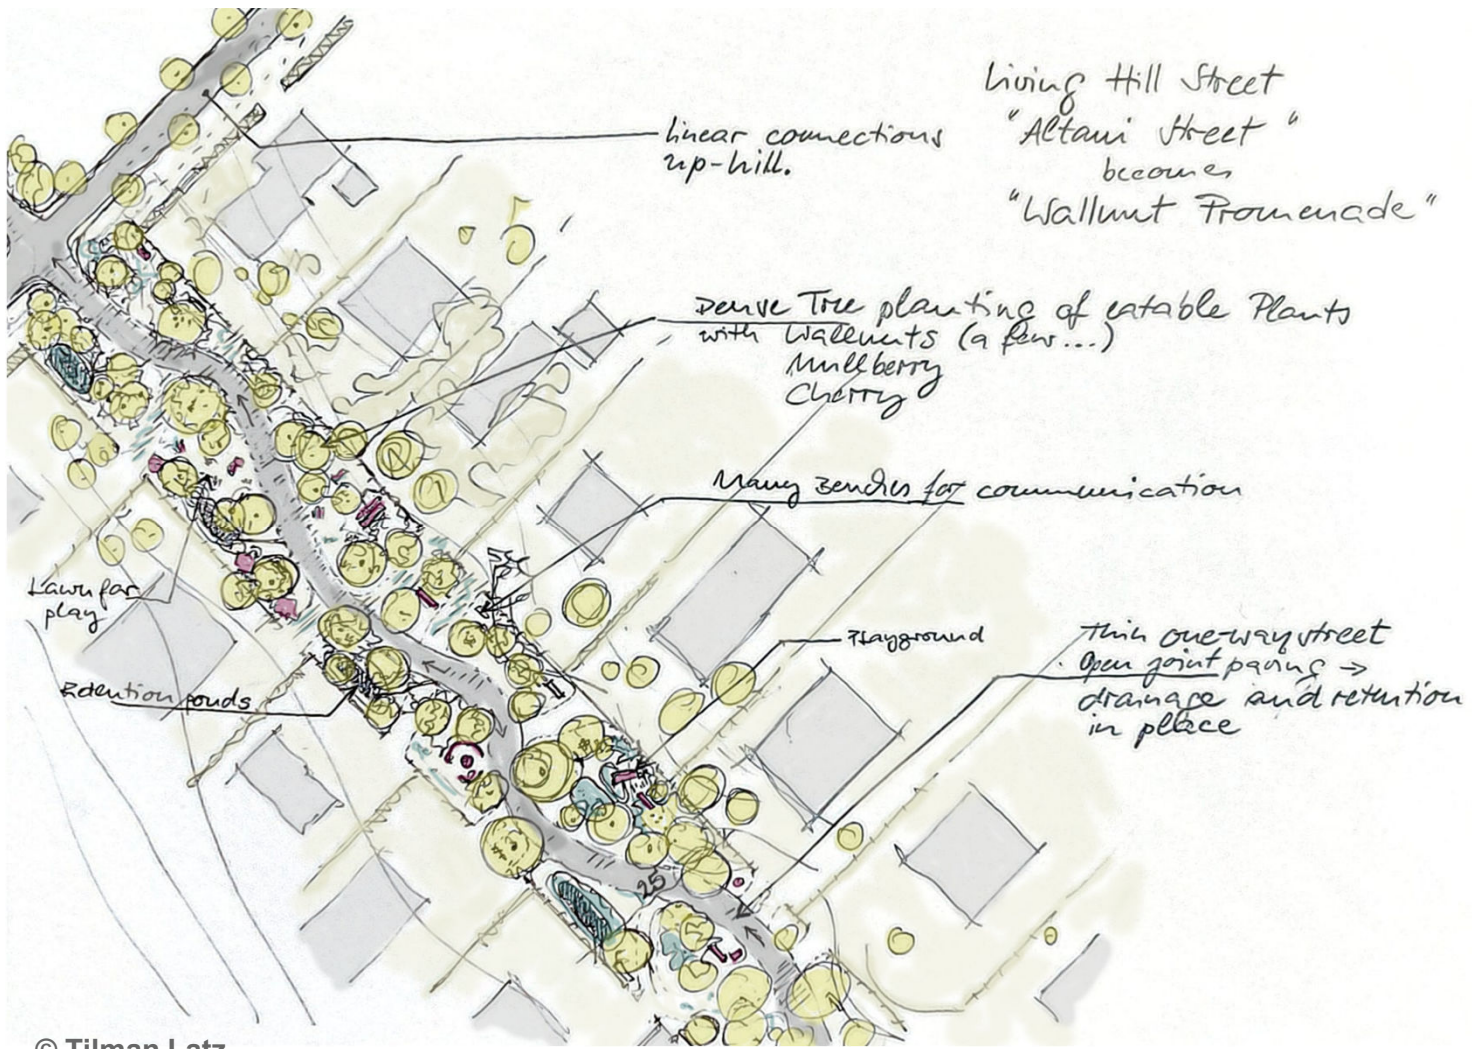 Living Hill Street
"Altani Street"
becomes
"Wallnut Promenade"
linear connections
up-hill.
Dense Tree planting of eatable Plants
with Wallnuts (a few...)
Mullberry
Cherry
Many Benches for communication
Lawn for
play
Playground
Thin one-way street
Open joint paving →
drainage and retention
in place
Retention ponds
25
© Tilman Latz